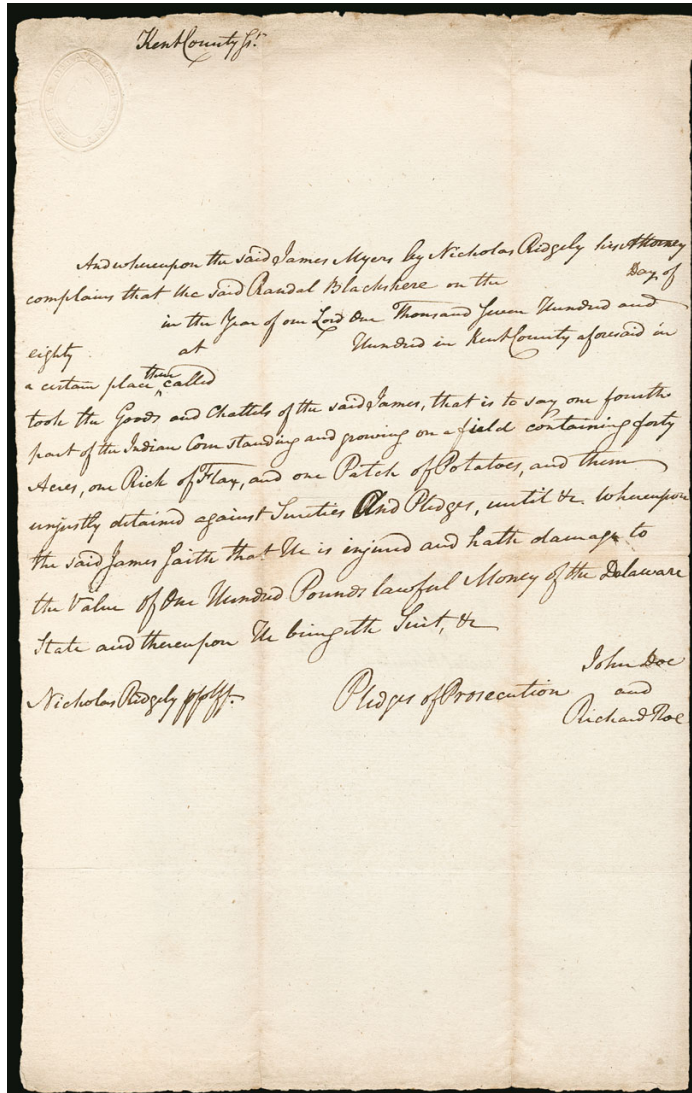 Kent County ss.
And whereupon the said James Myers by Nicholas Ridgely his Attorney
complains that the said Randal Blackshere on the Day of
in the Year of our Lord One Thousand Seven Hundred and
eighty at Hundred in Kent County aforesaid in
a certain place then called
took the Goods and Chattels of the said James, that is to say one fourth
part of the Indian Corn standing and growing on a field containing forty
Acres, one Rick of Flax, and one Patch of Potatoes, and them
unjustly detained against Sureties And Pledges, until &c. Whereupon
the said James saith that He is injured and hath damage to
the Value of One Hundred Pounds lawful Money of the Delaware
State and thereupon He bringeth Suit, &c
John Doe
Nicholas Ridgely Pledges of Prosecution and
Richard Roe